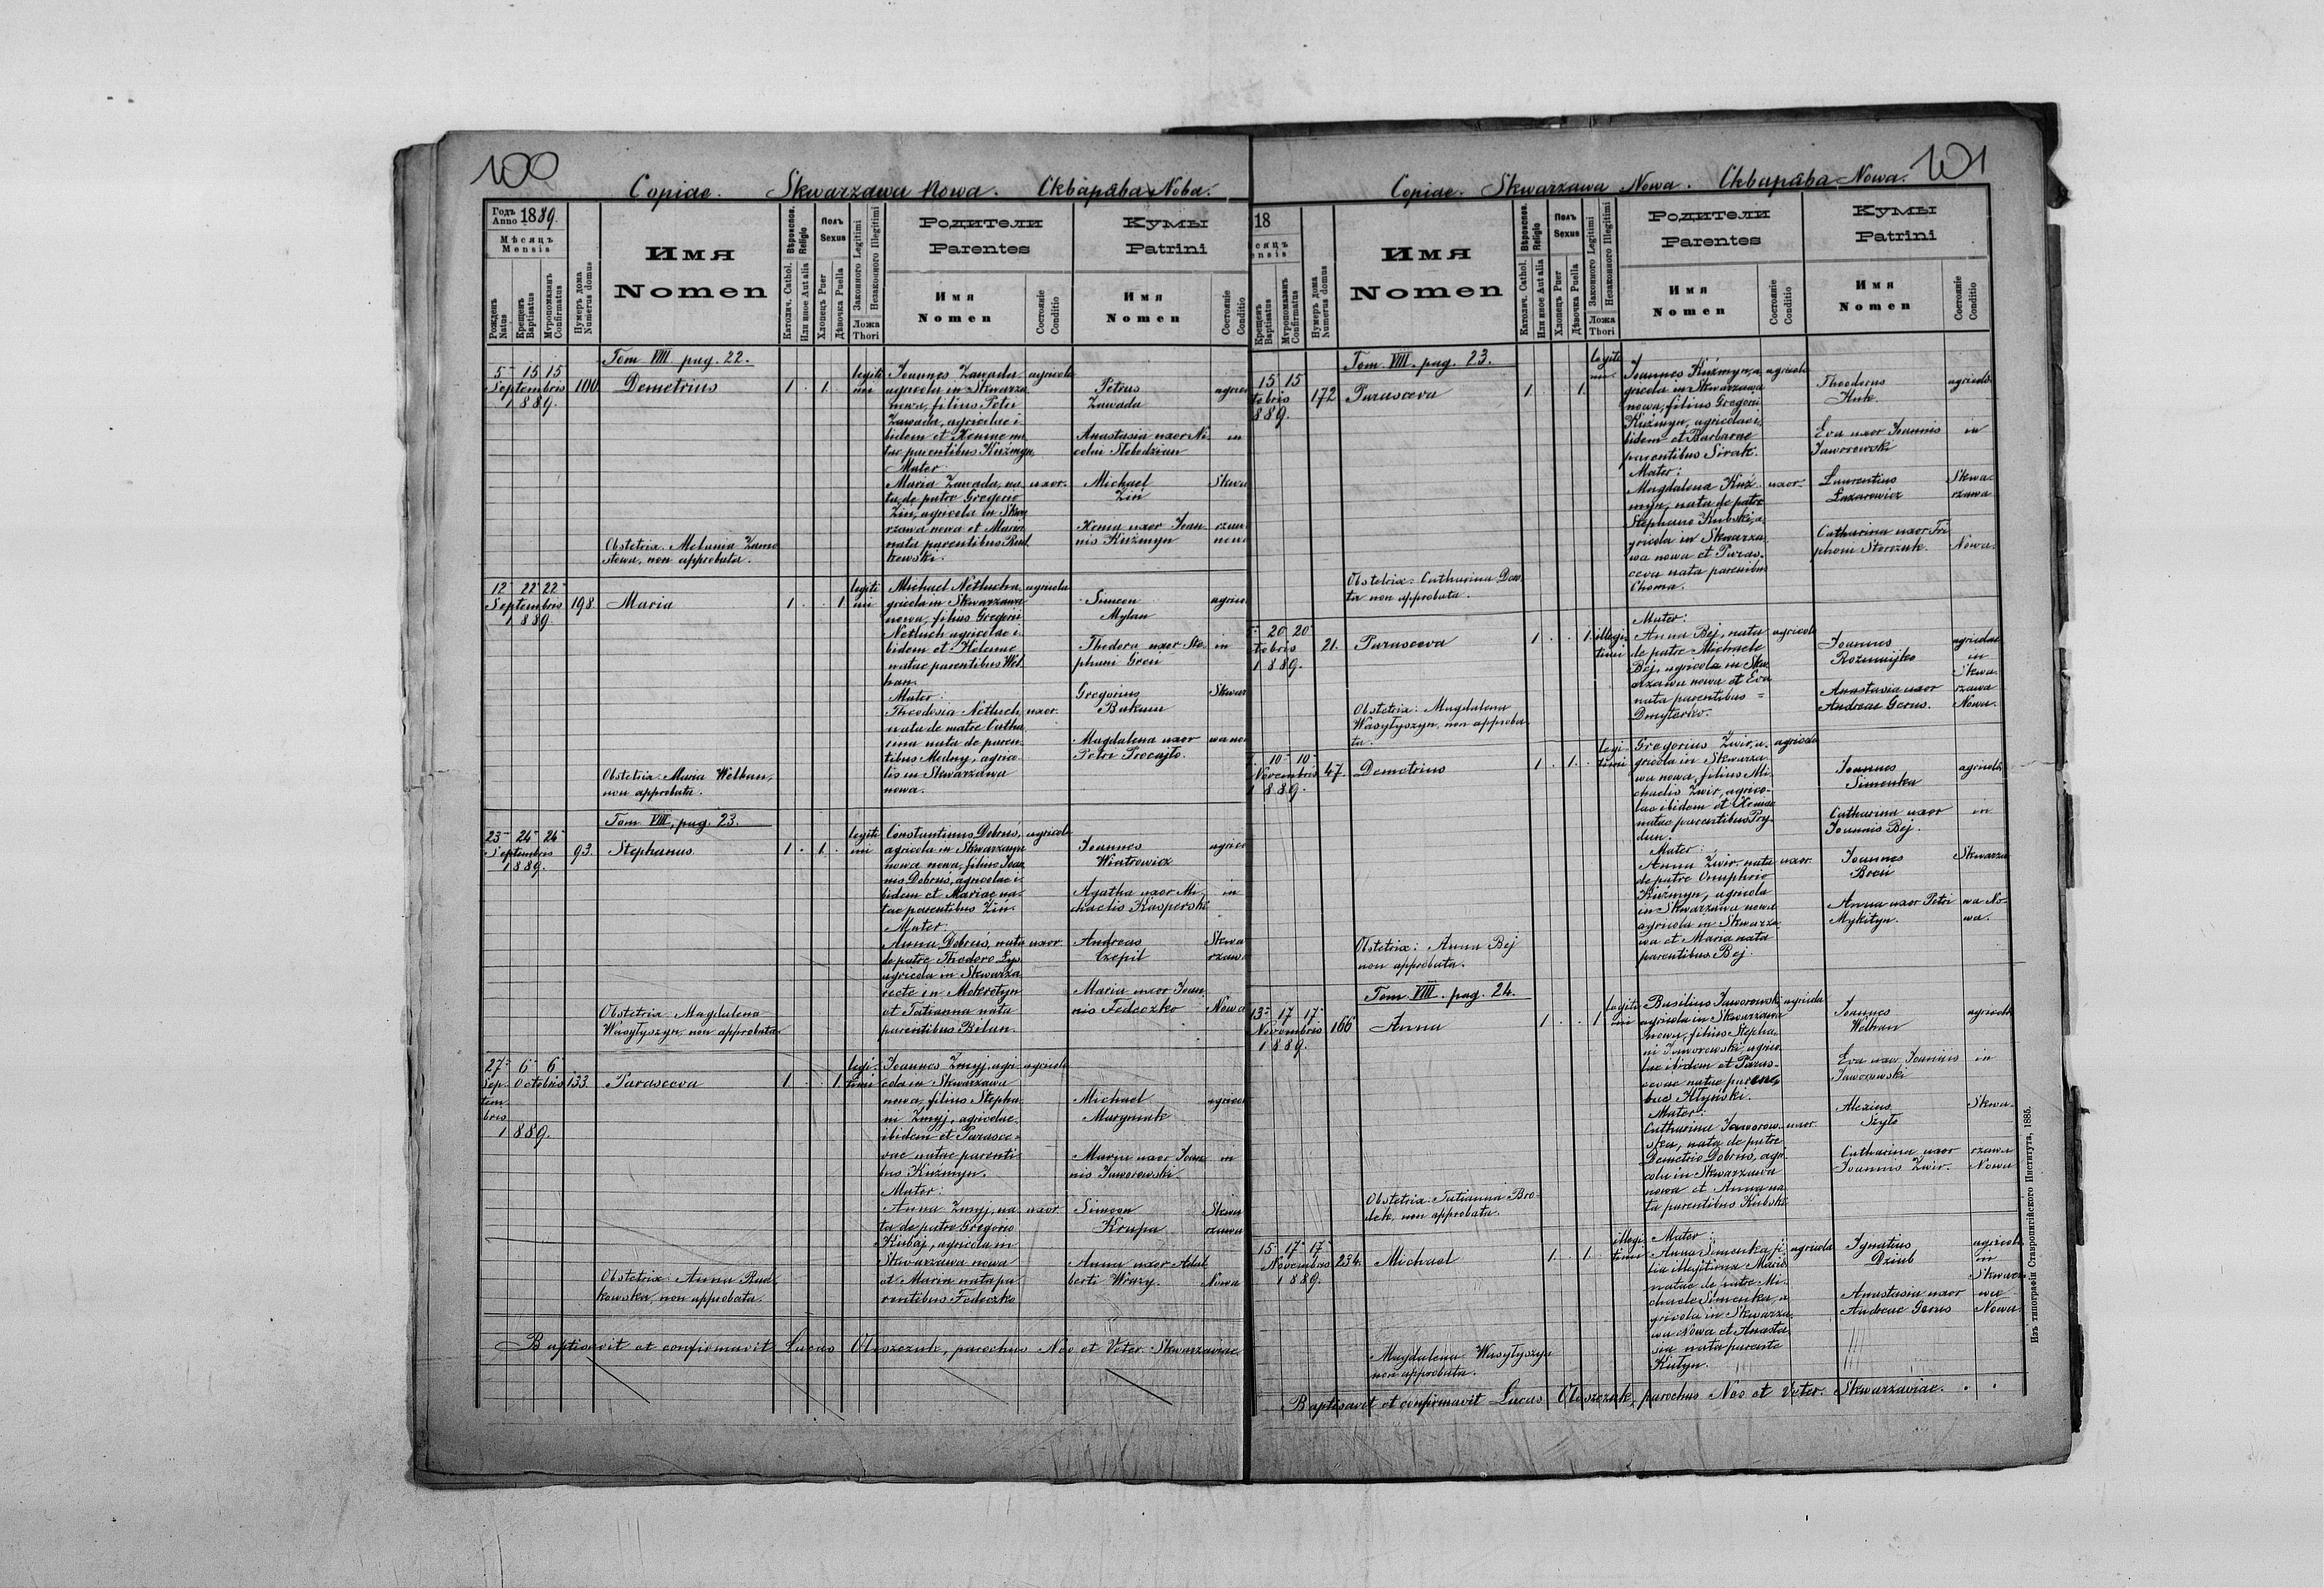 100
Copiae. Skwarzawa Nowa. Скварѣва Нова.
Годъ Anno 1889.
Мѣсяцъ Mensis
Рожденъ Natus
Крещенъ Baptisatus
Мѵропомазанъ Confirmatus
Нумеръ дома Numerus domus
Имя Nomen
Вѣроиспов. Religio
Католич. Cathol.
Или иное Aut alia
Полъ Sexus
Хлопецъ Puer
Дѣвочка Puella
Законного Legitimi
Незаконного Illegitimi
Ложа Thori
Родители Parentes
Имя Nomen
Состояніе Conditio
Кумы Patrini
Имя Nomen
Состояніе Conditio
Tom VIII pag. 22.
5 15 15
Septembris
1889.
100
Demetrius
1 . 1 .
legiti
mi
Joannes Zawada
agricola in Skwarza
nowa, filius Petri
Zawada, agricolae i
bidem et Xeniae na
tae parentibus Kuźmyn
Mater
Maria Zawada, na
ta de patre Gregorio
Zin, agricola in Skwa
rzawa nowa et Maria
nata parentibus Rud
kowski.
agricola
uxor.
Petrus
Zawada
Anastasia uxor Ni
colai Slobodzian
Michael
Zin
Xenia uxor Joan
nis Kuźmyn
agrico
in
Skwa
rzaw
nowa
Obstetrix Melania Zamo
stowa, non approbata.
12 22 22
Septembris
1889.
198.
Maria
1 . . 1
legiti
mi
Michael Netluch a
gricola in Skwarzawa
nowa, filius Gregorii
Netluch agricolae i
bidem et Helenae
natae parentibus Wel
han.
Mater:
Theodosia Netluch
nata de matre Catha
rina nata de paren
tibus Medny, agrico
lis in Skwarzawa
nowa.
agricola
uxor.
Simeon
Mylan
Theodora uxor Ste
phani Gren
Gregorius
Bakun
Magdalena uxor
Petri Procajło.
agrico
in
Skwar
wa no
Obstetrix Maria Welhan,
non approbata.
Tom VIII, pag. 23.
23 24 24
Septembris
1889.
93.
Stephanus
1 . 1 .
legiti
mi
Constantinus Dobruś,
agricola in Skwarzawa
nowa nowa, filius Joan
nis Dobruś, agricolae i
bidem et Mariae na
tae parentibus Zin.
Mater:
Anna Dobruś, nata
de patre Theodoro Lys
agricola in Skwarza
recte in Mokrotyn
et Tatianna nata
parentibus Bilan.
agricola
uxor.
Joannes
Wintrowicz
Agatha uxor Mi
chaelis Kasperski
Andreas
Czepil
Maria uxor Joan
nis Fedeczko
agrico
in
Skwa
rzawa
Nowa
Obstetrix Magdalena
Wasyłyszyn, non approbata
27 6 6
Sep- Octobris
tem-
bris
1889.
133.
Parasceva
1 . . 1
legi-
timi
Joannes Zmyj, agri
cola in Skwarzawa
nowa, filius Stepha
ni Zmyj, agricolae
ibidem et Parasce-
vae natae parenti
bus Kuźmyn.
Mater:
Anna Zmyj, na
ta de patre Gregorio
Kubaj, agricola in
Skwarzawa nowa
et Maria nata pa
rentibus Fedeczko
agricola
uxor.
Michael
Maryniak
Maria uxor Joan
nis Jaworowski.
Simeon
Krupa
Anna uxor Adal
berti Wrazy.
agricol
in
Skwa
rzawa
Nowa
Obstetrix Anna Rud
kowska, non approbata.
Baptisavit et confirmavit Lucas Oloszczuk, parochus Neo et Veter. Skwarzaviae
101
Copiae. Skwarzawa Nowa. Скварѣва Nowa.
18
Крещенъ Baptisatus
Мѵропомазанъ Confirmatus
Нумеръ дома Numerus domus
Имя Nomen
Вѣроиспов. Religio
Католич. Cathol.
Или иное Aut alia
Полъ Sexus
Хлопецъ Puer
Дѣвочка Puella
Законного Legitimi
Незаконного Illegitimi
Ложа Thori
Родители Parentes
Имя Nomen
Состояніе Conditio
Кумы Patrini
Имя Nomen
Состояніе Conditio
Tom VIII. pag. 23.
15 15
tobris
889.
172
Parasceva
1 . . 1.
legiti
mi.
Joannes Kuźmyn, a
gricola in Skwarzawa
nowa, filius Gregorii
Kuźmyn, agricolae i
bidem et Barbarae
parentibus Sirak.
Mater:
Magdalena Kuź
myn, nata de patre
Stephano Kubski, a
gricola in Skwarza
wa nowa et Paras
ceva nata parentibus
Choma.
agricola
uxor.
Theodorus
Huk.
Eva uxor Joannis
Jaworowski
Laurentius
Lazarowicz
Catharina uxor Tri
phoni Storczuk.
agricolae
in
Skwa-
rzawa
Nowa.
Obstetrix: Catharina Dow
ta non approbata.
20 20
tobris
1889.
21.
Parasceva
1 . . 1.
illegi
timi
Mater:
Anna Bej, nata
de patre Michaele
Bej, agricola in Skwa
rzawa nowa et Eva
nata parentibus =
Dmyterko.
agricola
Joannes
Rozumijko
Anastasia uxor
Andreae Gerus.
agricolae
in
Skwa
rzawa
Nowa.
Obstetrix: Magdalena
Wasyłyszyn, non approba
ta.
10 10
Novembris
1889.
47.
Demetrius
1 . 1 .
legi-
timi
Gregorius Zwir, a.
gricola in Skwarza
wa nowa, filius Mi
chaelis Zwir, agrico-
lae ibidem et Xeniae
natae parentibus Pry
dun.
Mater:
Anna Zwir, nata
de patre Onuphrio
Kuźmyn, agricola
in Skwarzawa nowa
agricola in Skwarza
wa et Maria nata
parentibus Bej.
agricola
uxor.
Joannes
Simenka
Catharina uxor
Joannis Bej.
Joannes
Breń
Anna uxor Petri
Mykityn.
agricola
in
Skwarza
wa No-
wa.
Obstetrix: Anna Bej
non approbata.
Tom VIII. pag. 24.
13 17 17
Novembris
1889.
166
Anna
1 . . 1
legiti
mi
Basilius Jaworowski
agricola in Skwarzawa
nowa, filius Stepha
ni Jaworowski, agrico
lae ibidem et Paras-
cevae natae paren
bus Kłyński.
Mater:
Catharina Jaworow
ska, nata de patre
Demetrio Dobruś, agri
cola in Skwarzawa
nowa et Anna na
ta parentibus Kubski
agricola
uxor.
Joannes
Welhan
Eva uxor Joannis
Jaworowski
Alexius
Szyło
Catharina uxor
Joannis Zwir.
agricola
in
Skwa-
rzawa
Nowa
Obstetrix: Tatianna Bro-
dek, non approbata.
15 17 17
Novembris
1889.
234.
Michael
1 . 1 .
illegi
timi
Mater:
Anna Simenka fi
lia illegitima Maria
natae de patre Mi-
chaele Simenka, a
gricola in Skwarza-
wa Nowa et Anasta
sia nata parente
Kutyn.
agricola
Ignatius
Dziub
Anastasia uxor
Andreae Gerus
agricola
in
Skwarza
wa
Nowa
Magdalena Wasyłyszyn
non approbata.
Baptisavit et confirmavit Lucas Oloszczuk, parochus Neo et Veter. Skwarzaviae.
Изъ типографіи Ставропигійского Института, 1885.